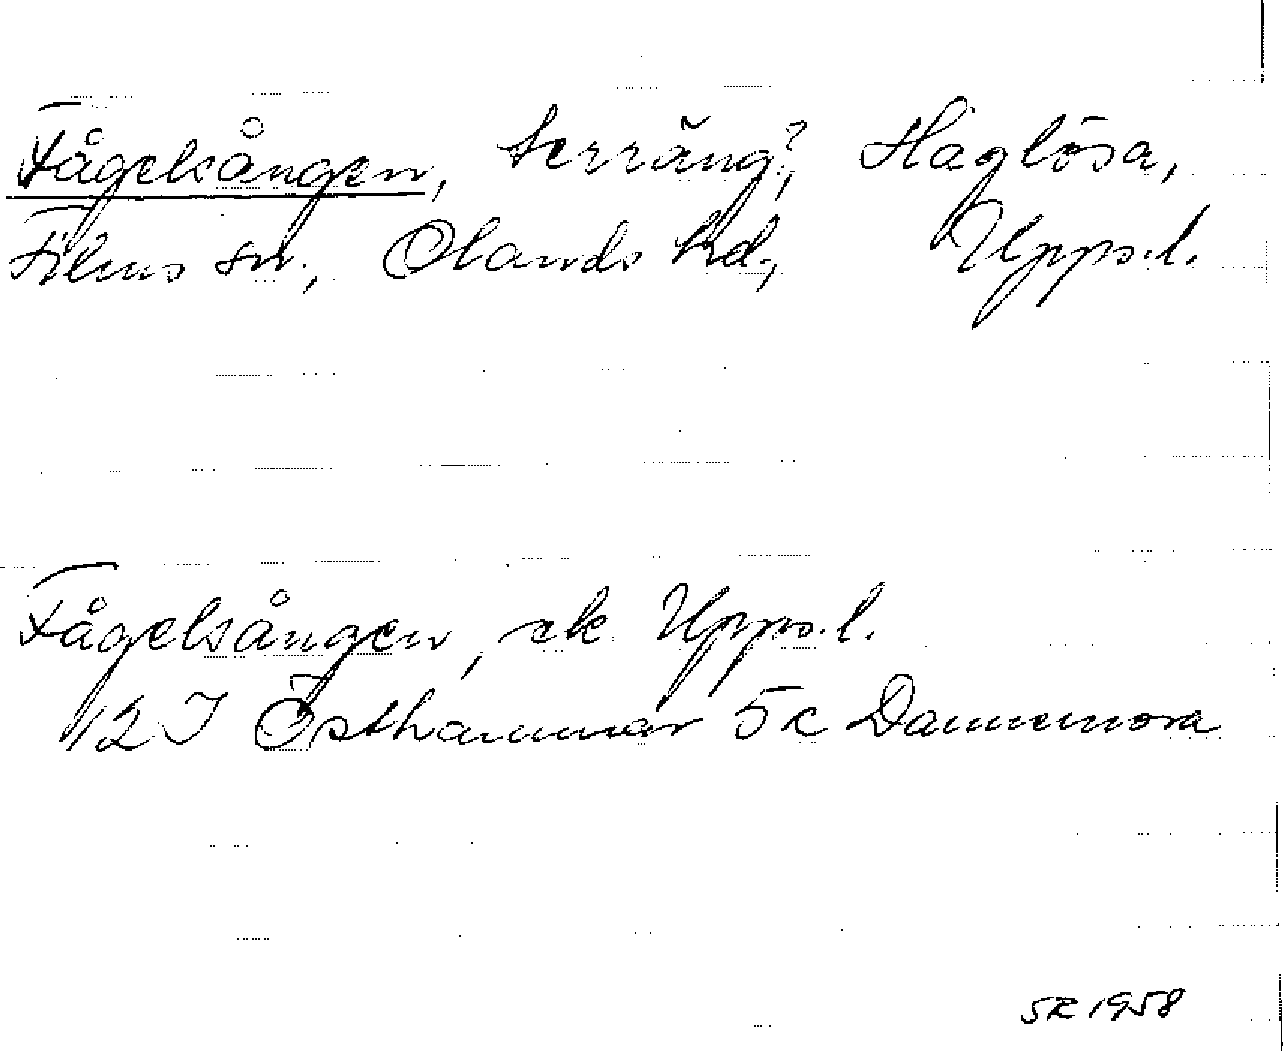 Fågelsången, terräng?, Haglösa,
Films sn., Olands hd., Upps.l.
Fågelsången, ek. Upps.l.
12 I Östhammar 5c Dannemora
SR 1958